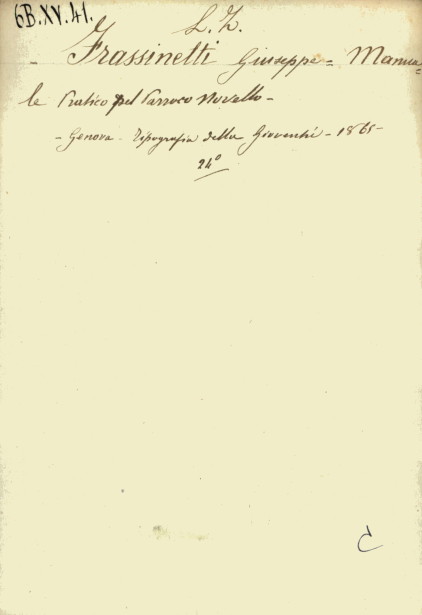 6B.XV.41.
L. Z.
- Frassinetti Giuseppe = Manua=
le Pratico pel Parroco Novello -
- Genova - Tipografia della Gioventù - 1865 -
24°
C